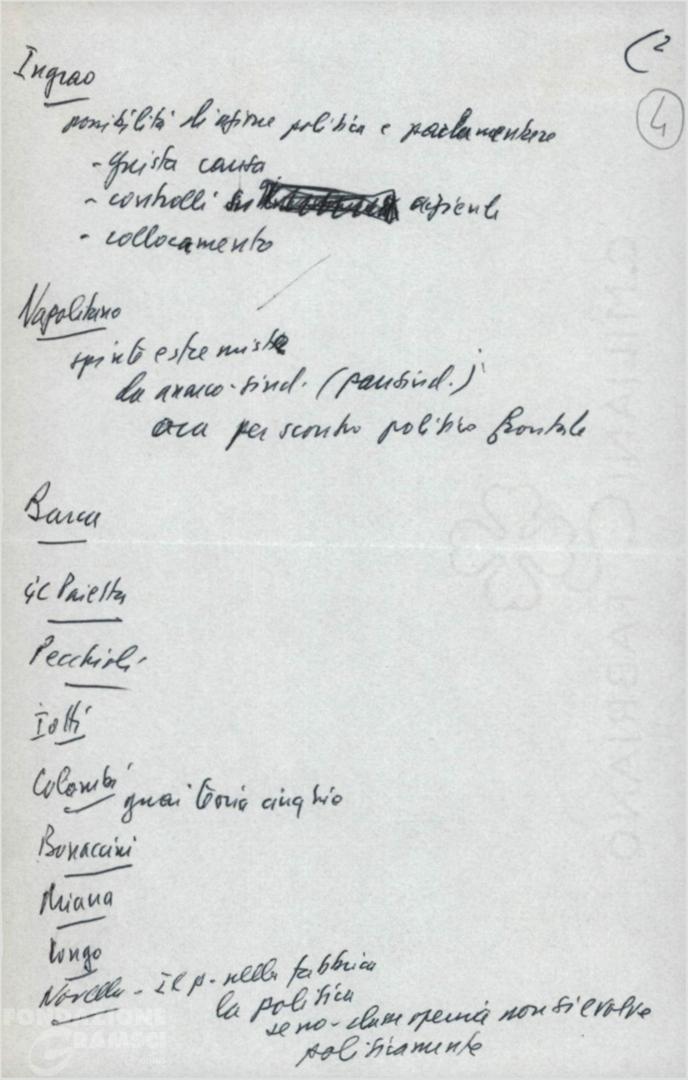 (2
4
Ingrao
possibilità di azione politica e parlamentare
- giusta causa
- controlli su aziende
- collocamento
Napolitano
spinte estremiste
da anarco-sind. (pansind.)
ora per scontro politico frontale
Barca
GC Paietta
Pecchioli
Iotti
Colombi guai teoria cinghia
Bonaccini
Miana
Longo
Novella - Il p. nella fabbrica
la politica
se no - classe operaia non si evolve
politicamente
C.MILIANI FABRIANO
FONDAZIONE
GRAMSCI